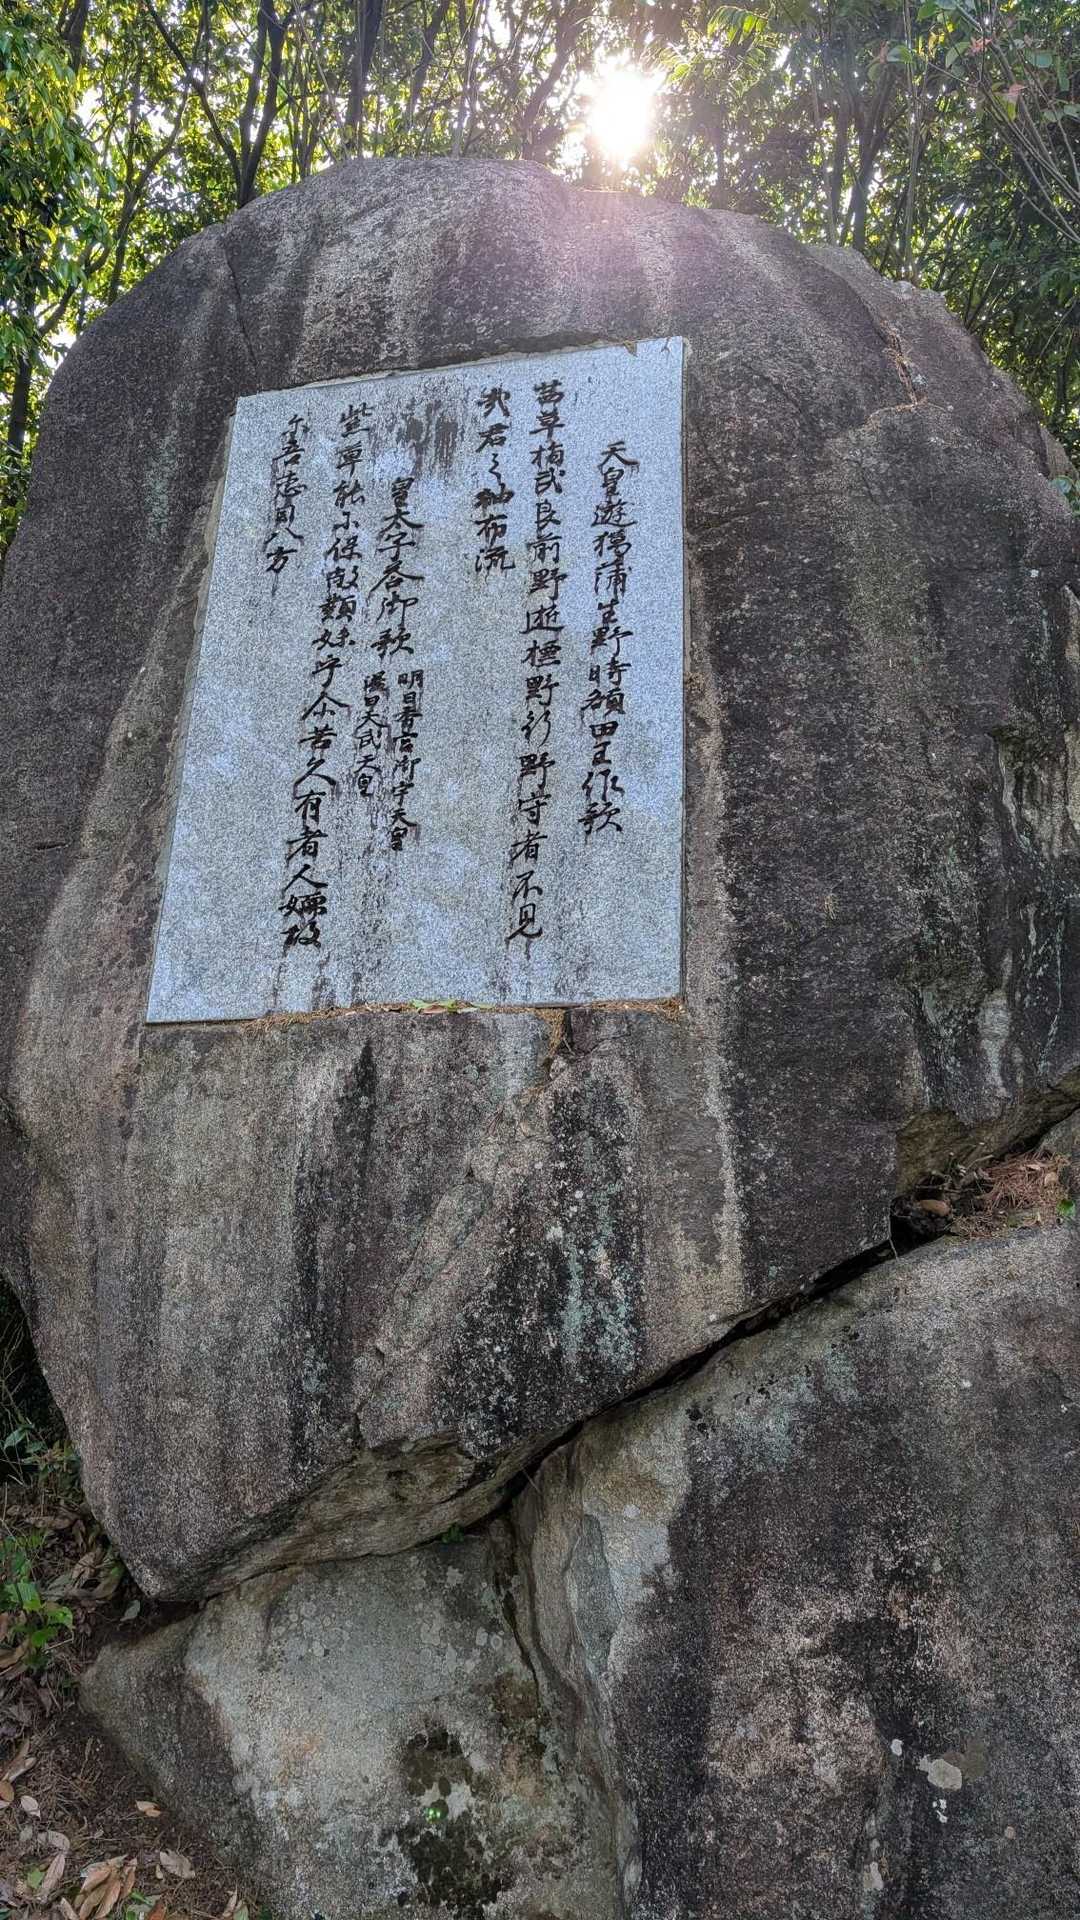 天皇遊猟蒲生野時額田王作歌
茜草指武良前野逝標野行野守者不見
哉君之袖布流
皇太子答御歌
明日香宮御宇天皇
謚曰天武天皇
紫草能尓保敝類妹乎尓苦久有者人嬬故
尓吾恋目八方